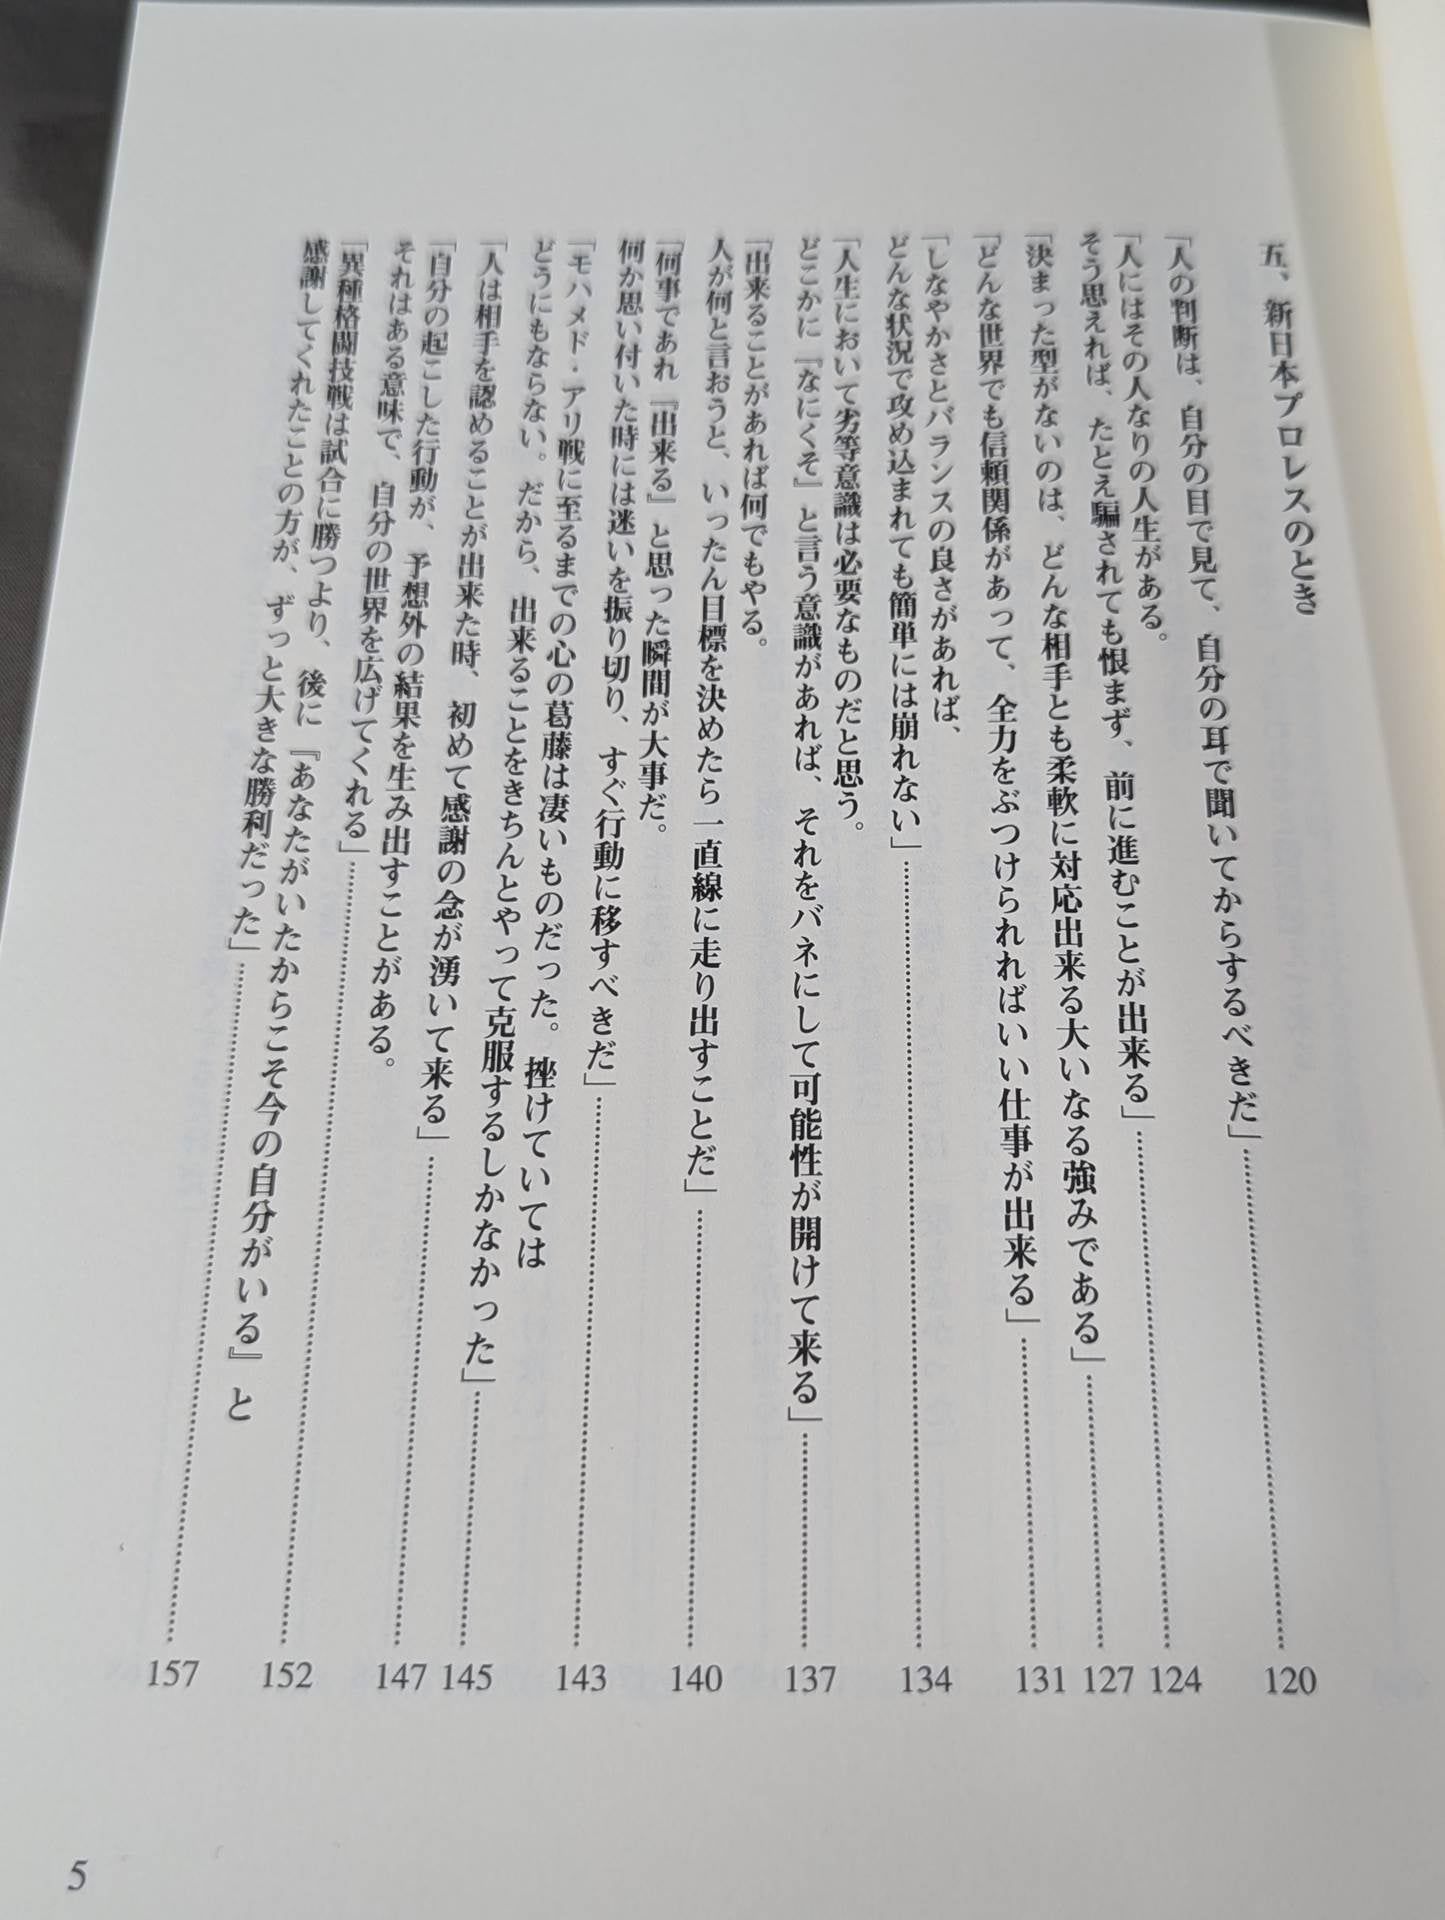 五、新日本プロレスのとき
「人の判断は、自分の目で見て、自分の耳で聞いてからするべきだ」……120
「人にはその人なりの人生がある。
そう思えれば、たとえ騙されても恨まず、前に進むことが出来る」……124
「決まった型がないのは、どんな相手とも柔軟に対応出来る大いなる強みである」……127
「どんな世界でも信頼関係があって、全力をぶつけられればいい仕事が出来る」……131
「しなやかさとバランスの良さがあれば、
どんな状況で攻め込まれても簡単には崩れない」……134
「人生において劣等意識は必要なものだと思う。
どこかに『なにくそ』と言う意識があれば、それをバネにして可能性が開けて来る」……137
「出来ることがあれば何でもやる。
人が何と言おうと、いったん目標を決めたら一直線に走り出すことだ」……140
「何事であれ『出来る』と思った瞬間が大事だ。
何か思い付いた時には迷いを振り切り、すぐ行動に移すべきだ」……143
「モハメド・アリ戦に至るまでの心の葛藤は凄いものだった。挫けていては
どうにもならない。だから、出来ることをきちんとやって克服するしかなかった」……145
「人は相手を認めることが出来た時、初めて感謝の念が湧いて来る」……147
「自分の起こした行動が、予想外の結果を生み出すことがある。
それはある意味で、自分の世界を広げてくれる」……152
「異種格闘技戦は試合に勝つより、後に『あなたがいたからこそ今の自分がいる』と
感謝してくれたことの方が、ずっと大きな勝利だった」……157
5